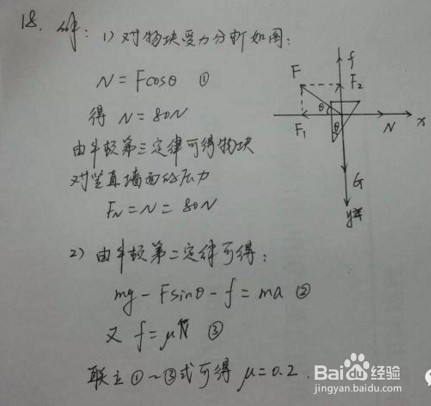 18. 解: 1) 对物块受力分析如图:
N = Fcosθ ①
得 N = 80N
由牛顿第三定律可得物块
对竖直墙面的压力
F_N = N = 80N
2) 由牛顿第二定律可得:
mg - Fsinθ - f = ma ②
又 f = μN ③
联立①~③式可得 μ = 0.2.
f
F F₂
θ
F₁ θ N x
G
y
Baidu经验
jingyan.baidu.com